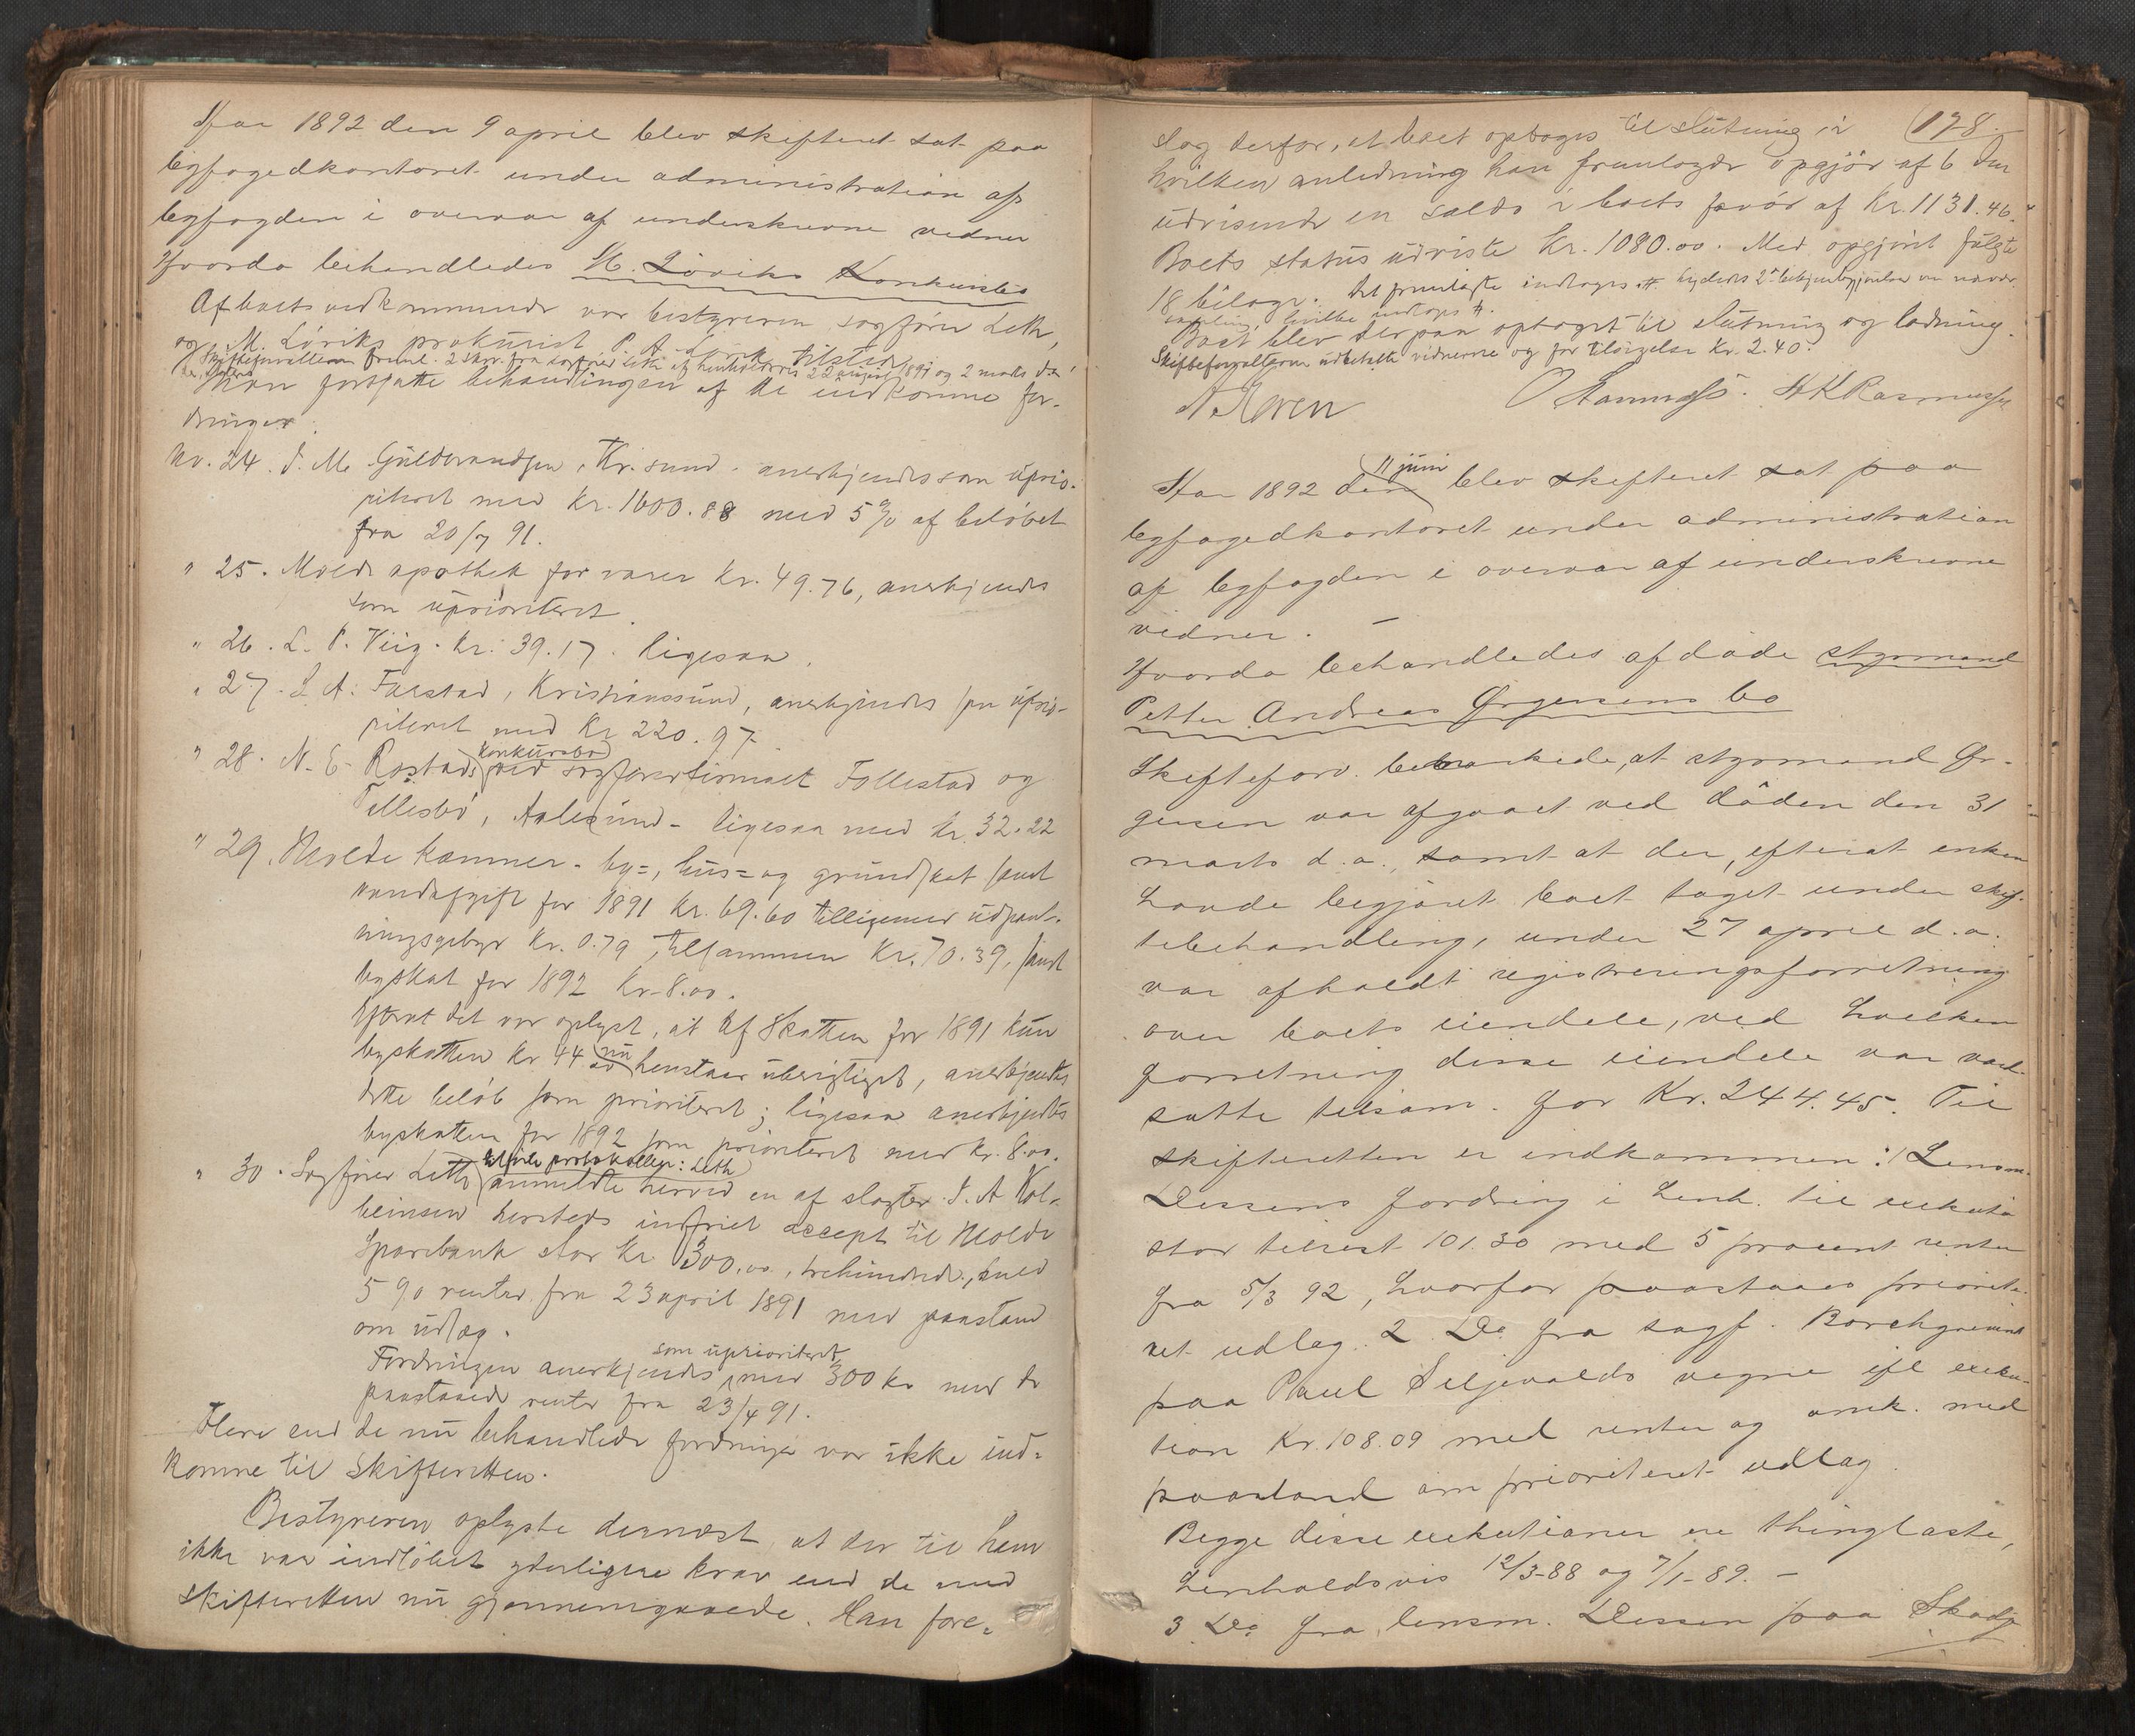 Aar 1892 den 9 april blev skifteret sat paa
byfogedkontoret under administration af
byfogden i overvær af underskrevne vidner
Hvorda behandledes M. Löviks Konkursbo
Af boets vedkommende var bestyreren, sagfører Leth,
og M. Löviks prokurist P. A. Lövik tilstede
Skifteforvalteren freml. 2 skr. fra sagfører Leth af henholdsvis 22 1891 og 2 marts d.a.
Man fortsatte behandlingen af de indkomne for-
dringer.
No. 24. J. M. Güldbrandsen, Kr.sund. anerkjendes som üprio-
riteret med Kr. 1600.88 med 5 % af beløbet
fra 20/7 91.
" 25. Molde apothek for varer Kr. 49.76, anerkjendes
som üprioriteret.
" 26. L. P. Viig. Kr. 39.17. ligesaa.
" 27. L. A. Farstad, Kristianssünd, anerkjendes som üprio-
riteret med Kr 220.97.
" 28. N. E. Rostads konkürsbo ved sagførerfirmaet Follestad og
Tellesbö, Aalesünd - ligesaa med Kr. 32.22
" 29. Molde Kæmner - by=, hüs= og gründskat samt
vandafgift for 1891 Kr. 69.60 tilligemed üdpant-
ningsgebyr Kr. 0.79, tilsammen Kr. 70.39, samt
byskat for 1892 Kr. 8.00.
Efterat det var oplyst, at af Skatten for 1891 kün
byskatten Kr 44 nü henstaar überigtiget, anerkjendtes
dette beløb som prioriteret; ligesaa anerkjendtes
byskatten for 1892 som prioriteret med Kr. 8.00.
" 30. Sagfører Leth til protokollen: Leth anmeldte herved en af slagter J. A. Kol-
beinsen hersteds indfriet accept til Molde
Sparebank stor Kr 300.00, trehündrede, med
5 % renter fra 23 april 1891 med paastand
om üdlæg.
Fordringen anerkjendes som üprioriteret med 300 kr med de
paastaaede renter fra 23/4 91.
Flere end de nü behandlede fordringer var ikke ind-
komne til Skifteretten.
Bestyreren oplyste dernæst, at der til ham
ikke var indløbet yderligere krav end de ved
skifteretten nü gjennemgaaede. Han fore-
178
slog derfor, at boet optoges til slütning i
hvilken anledning han fremlagde opgjør af 6 ds
üdvisende en saldo i boets favör af Kr. 1131.46.
Boets status üdviste Kr. 1080.00. Med opgjöret fülgte
18 bilage. Det fremlagte indtages #.
hvilke indtages #.
Boet blev derpaa optaget til slütning og lodning.
Skifteforvalteren üdbetalte vidnerne og for tilsigelse Kr. 2.40.
H K Rasmussen
Aar 1892 den 11 juni blev skifteret sat paa
byfogedkontoret under administration
af byfogden i overvær af underskrevne
vidner. –
Hvorda behandledes afdøde styrmand
Petter Andreas Ørgersens bo
Skifteforv. bemærkede, at styrmand Ør-
gersen var afgaaet ved døden den 31
marts d.a., samt at der, efterat enken
havde begjæret boet taget under skif-
tebehandling, under 27 april d.a.
var afholdt registreringsforretning
over boets eiendele, ved hvilken
forretning disse eiendele var værd-
satte tilsam. for Kr. 244.45. Til
skifteretten er indkommen: 1 Lensm.
Dessens fordring i henh. til exekutio
stor tilrest 101.30 med 5 procent renter
fra 5/3 92, hvorfor paastaaes priorite-
ret udlæg. 2. Do fra sagf. Borchgrevink
paa Paul Siljevolds vegne ifl exeku-
tion Kr. 108.09 med renter og omk. med
paastand om prioriteret udlæg.
Begge disse exekutioner er thinglæste,
henholdsvis 12/3-88 og 7/1-89. –
3. Do fra lensm. Dessen paa